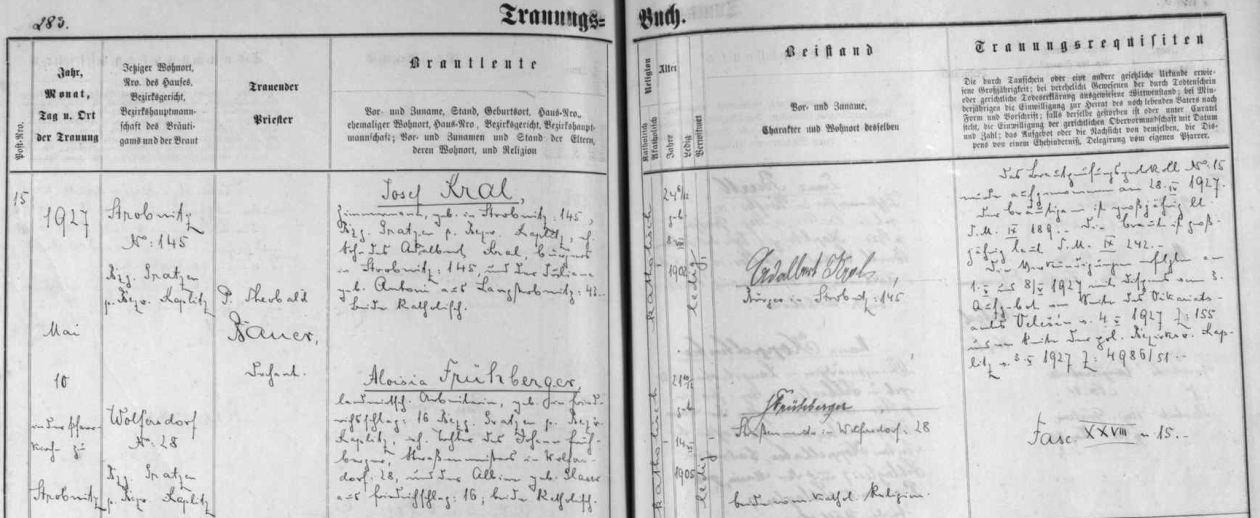 283.
Trauungs=
Buch.
Post-Nro.
Jahr,
Monat,
Tag u. Ort
der Trauung
Jetziger Wohnort,
Nro. des Hauses,
Bezirksgericht,
Bezirkshauptmann-
schaft des Bräuti-
gams und der Braut
Trauender
Priester
Brautleute
Vor- und Zuname, Stand, Geburtsort, Haus-Nro.,
ehemaliger Wohnort, Haus-Nro., Bezirksgericht, Bezirkshaupt-
mannschaft; Vor- und Zunamen und Stand der Eltern,
deren Wohnort, und Religion
Religion
Katholisch
Akatholisch
Alter
Jahre
Ledig
Verwitwet
Beistand
Vor- und Zuname,
Charakter und Wohnort desselben
Trauungsrequisiten
Die durch Taufschein oder eine andere gesetzliche Urkunde erwie-
sene Großjährigkeit; bei verehelicht Gewesenen der durch Todtenschein
oder gerichtliche Todeserklärung ausgewiesene Witwenstand; bei Min-
derjährigen die Einwilligung zur Heirat des noch lebenden Vaters nach
Form und Vorschrift; falls derselbe gestorben ist oder unter Curatel
steht, die Einwilligung der gerichtlichen Obervormundschaft mit Datum
und Zahl; das Aufgebot oder die Nachsicht von demselben, die Dis-
pens von einem Ehehinderniß, Delegirung vom eigenen Pfarrer.
15
1927
Mai
10
in der Pfarr-
kirche zu
Strobnitz
Strobnitz
No: 145
Bzg. Gratzen
p. Bezw. Kaplitz
Wolfersdorf
No. 28
Bzg. Gratzen
p. Bezw. Kaplitz
P. Theobald
Bauer,
Josef Kral,
Zimmermann, geb. in Strobnitz: 145,
Bzg. Gratzen p. Bezw. Kaplitz, ehl.
Sohn des Adalbert Kral, Bürgers
in Strobnitz: 145, und der Juliana
geb. Antoni aus Langstrobnitz: 43.-
beide katholisch.
Aloisia Frühberger,
landwirtsch. Arbeiterin, geb. in Fried-
richschlag: 16 Bzg. Gratzen p. Bezw.
Kaplitz, ehl. Tochter des Johann Früh-
berger, Straßenmeisters in Wolfers-
dorf: 28, und der geb.
aus Friedrichschlag: 16, beide katholisch.
katholisch
geb
1902
ledig
katholisch
geb
1905
ledig
Adalbert Kral,
Bürger in Strobnitz: 145
Frühberger
in Wolfersdorf: 28
beide kathol. Religion.
Das Brautprüfungsprotokoll No: 15
wurde aufgenommen am 28. IV 1927.
Der Bräutigam ist großjährig lt.
T.M. IX 189.- Die Braut ist groß-
jährig laut T.M. IX 242.-
Die Verkündigungen erfolgten am
1. V und 8. V 1927 mit Dispens vom 3.
Aufgebot von Seite des Vikariats-
amtes v. 4. V 1927 Z: 155
und von Seite der pol. Bezirksv. Kap-
litz v. 3. V 1927 Z: 4986/51.-
Fasc. XXVIII n 15.-